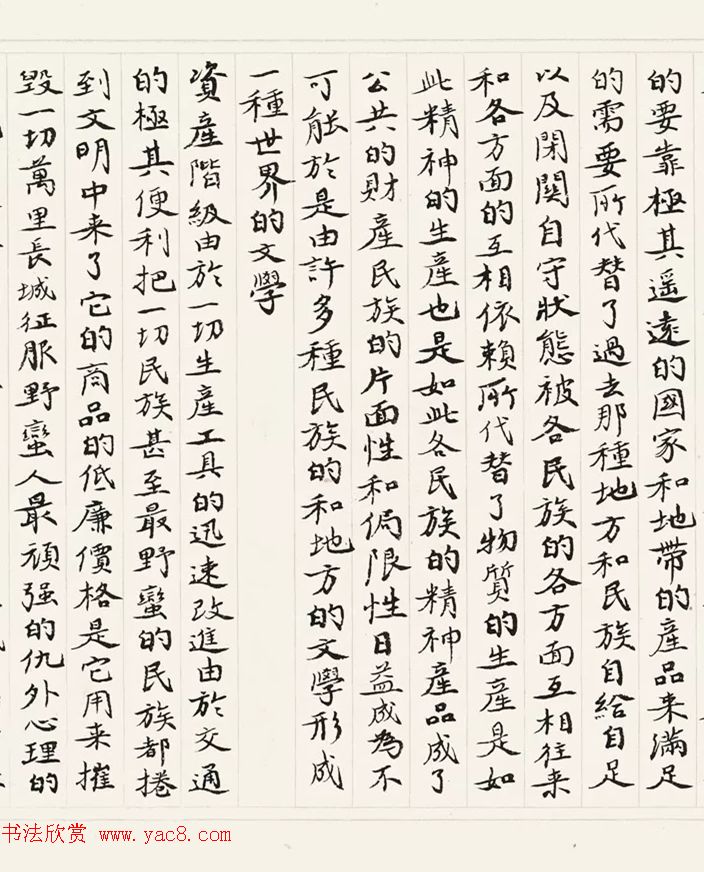 的要靠極其遥遠的國家和地帶的產品来滿足
的需要所代替了過去那種地方和民族自給自足
以及閉關自守狀態被各民族的各方面互相往来
和各方面的互相依賴所代替了物質的生產是如
此精神的生產也是如此各民族的精神產品成了
公共的財產民族的片面性和侷限性日益成為不
可能於是由許多種民族的和地方的文學形成
一種世界的文學
資產階級由於一切生產工具的迅速改進由於交通
的極其便利把一切民族甚至最野蠻的民族都捲
到文明中来了它的商品的低廉價格是它用来摧
毀一切萬里長城征服野蠻人最頑强的仇外心理的
书法欣赏 www.yac8.com